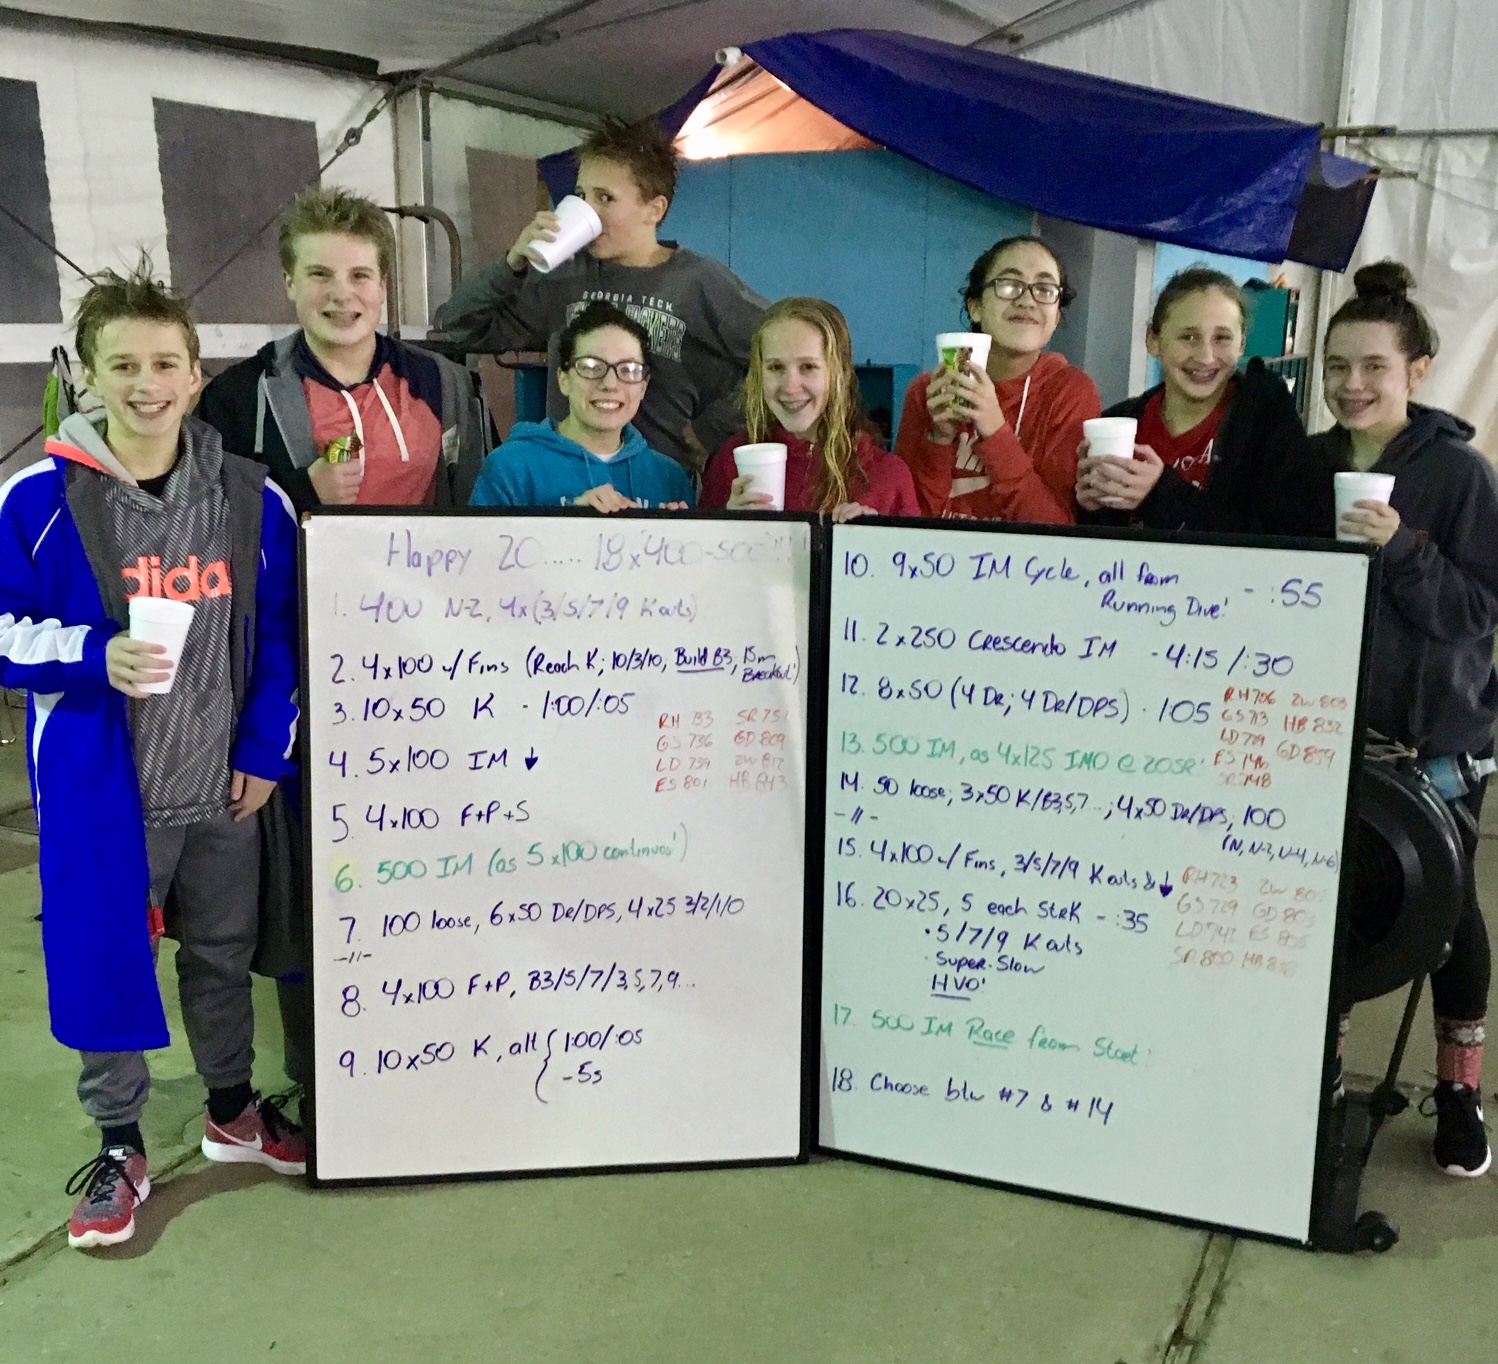 GEORGIA TECH
adidas
Happy 20..... 18x400-500!!!
1. 400 N-2, 4x(3/5/7/9 Kouts)
2. 4x100 w/ Fins (Reach K; 10/3/10, Build B3, 15m Breakout!)
3. 10x50 K - 1:00/:05
4. 5x100 IM ↓
RH 733 SR 751
GS 736 GD 809
LD 739 ZW 812
ES 801 HB 843
5. 4x100 F+P+S
6. 500 IM (as 5x100 continuos!)
7. 100 loose, 6x50 Dr/DPS, 4x25 3/2/1/0
-11-
8. 4x100 F+P, B3/5/7/3,5,7,9...
9. 10x50 K, alt { 1:00/:05
-5s
10. 9x50 IM Cycle, all from Running Dive! - :55
11. 2x250 Crescendo IM - 4:15/:30
12. 8x50 (4 Dr; 4 Dr/DPS) - 1:05
RH 706 ZW 803
GS 713 HB 832
LD 729 GD 859
ES 746
SR 748
13. 500 IM, as 4x125 IMO @ 20SR!
14. 50 loose; 3x50 K/B3,5,7...; 4x50 Dr/DPS, 100
(N, N-2, N-4, N-6)
-11-
15. 4x100 w/ Fins, 3/5/7/9 Kouts & ↓
16. 20x25, 5 each StrK - :35
• 5/7/9 Kouts
• Super-Slow
HVO!
RH 723
GS 729 GD
LD 742 ES
SR 800 HB
17. 500 IM Race from Start!
18. Choose btw #7 & #14